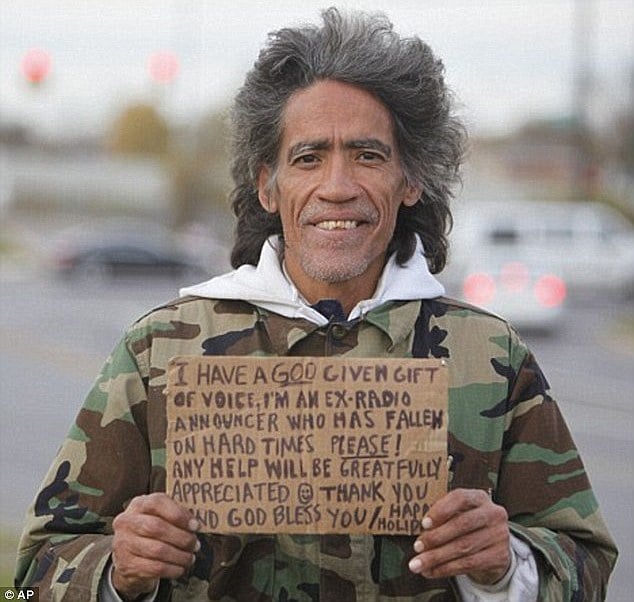 I HAVE A GOD GIVEN GIFT
OF VOICE. I'M AN EX-RADIO
ANNOUNCER WHO HAS FALLEN
ON HARD TIMES PLEASE!
ANY HELP WILL BE GREATFULLY
APPRECIATED ☺ THANK YOU
AND GOD BLESS YOU/HAPPY
HOLIDA
©AP